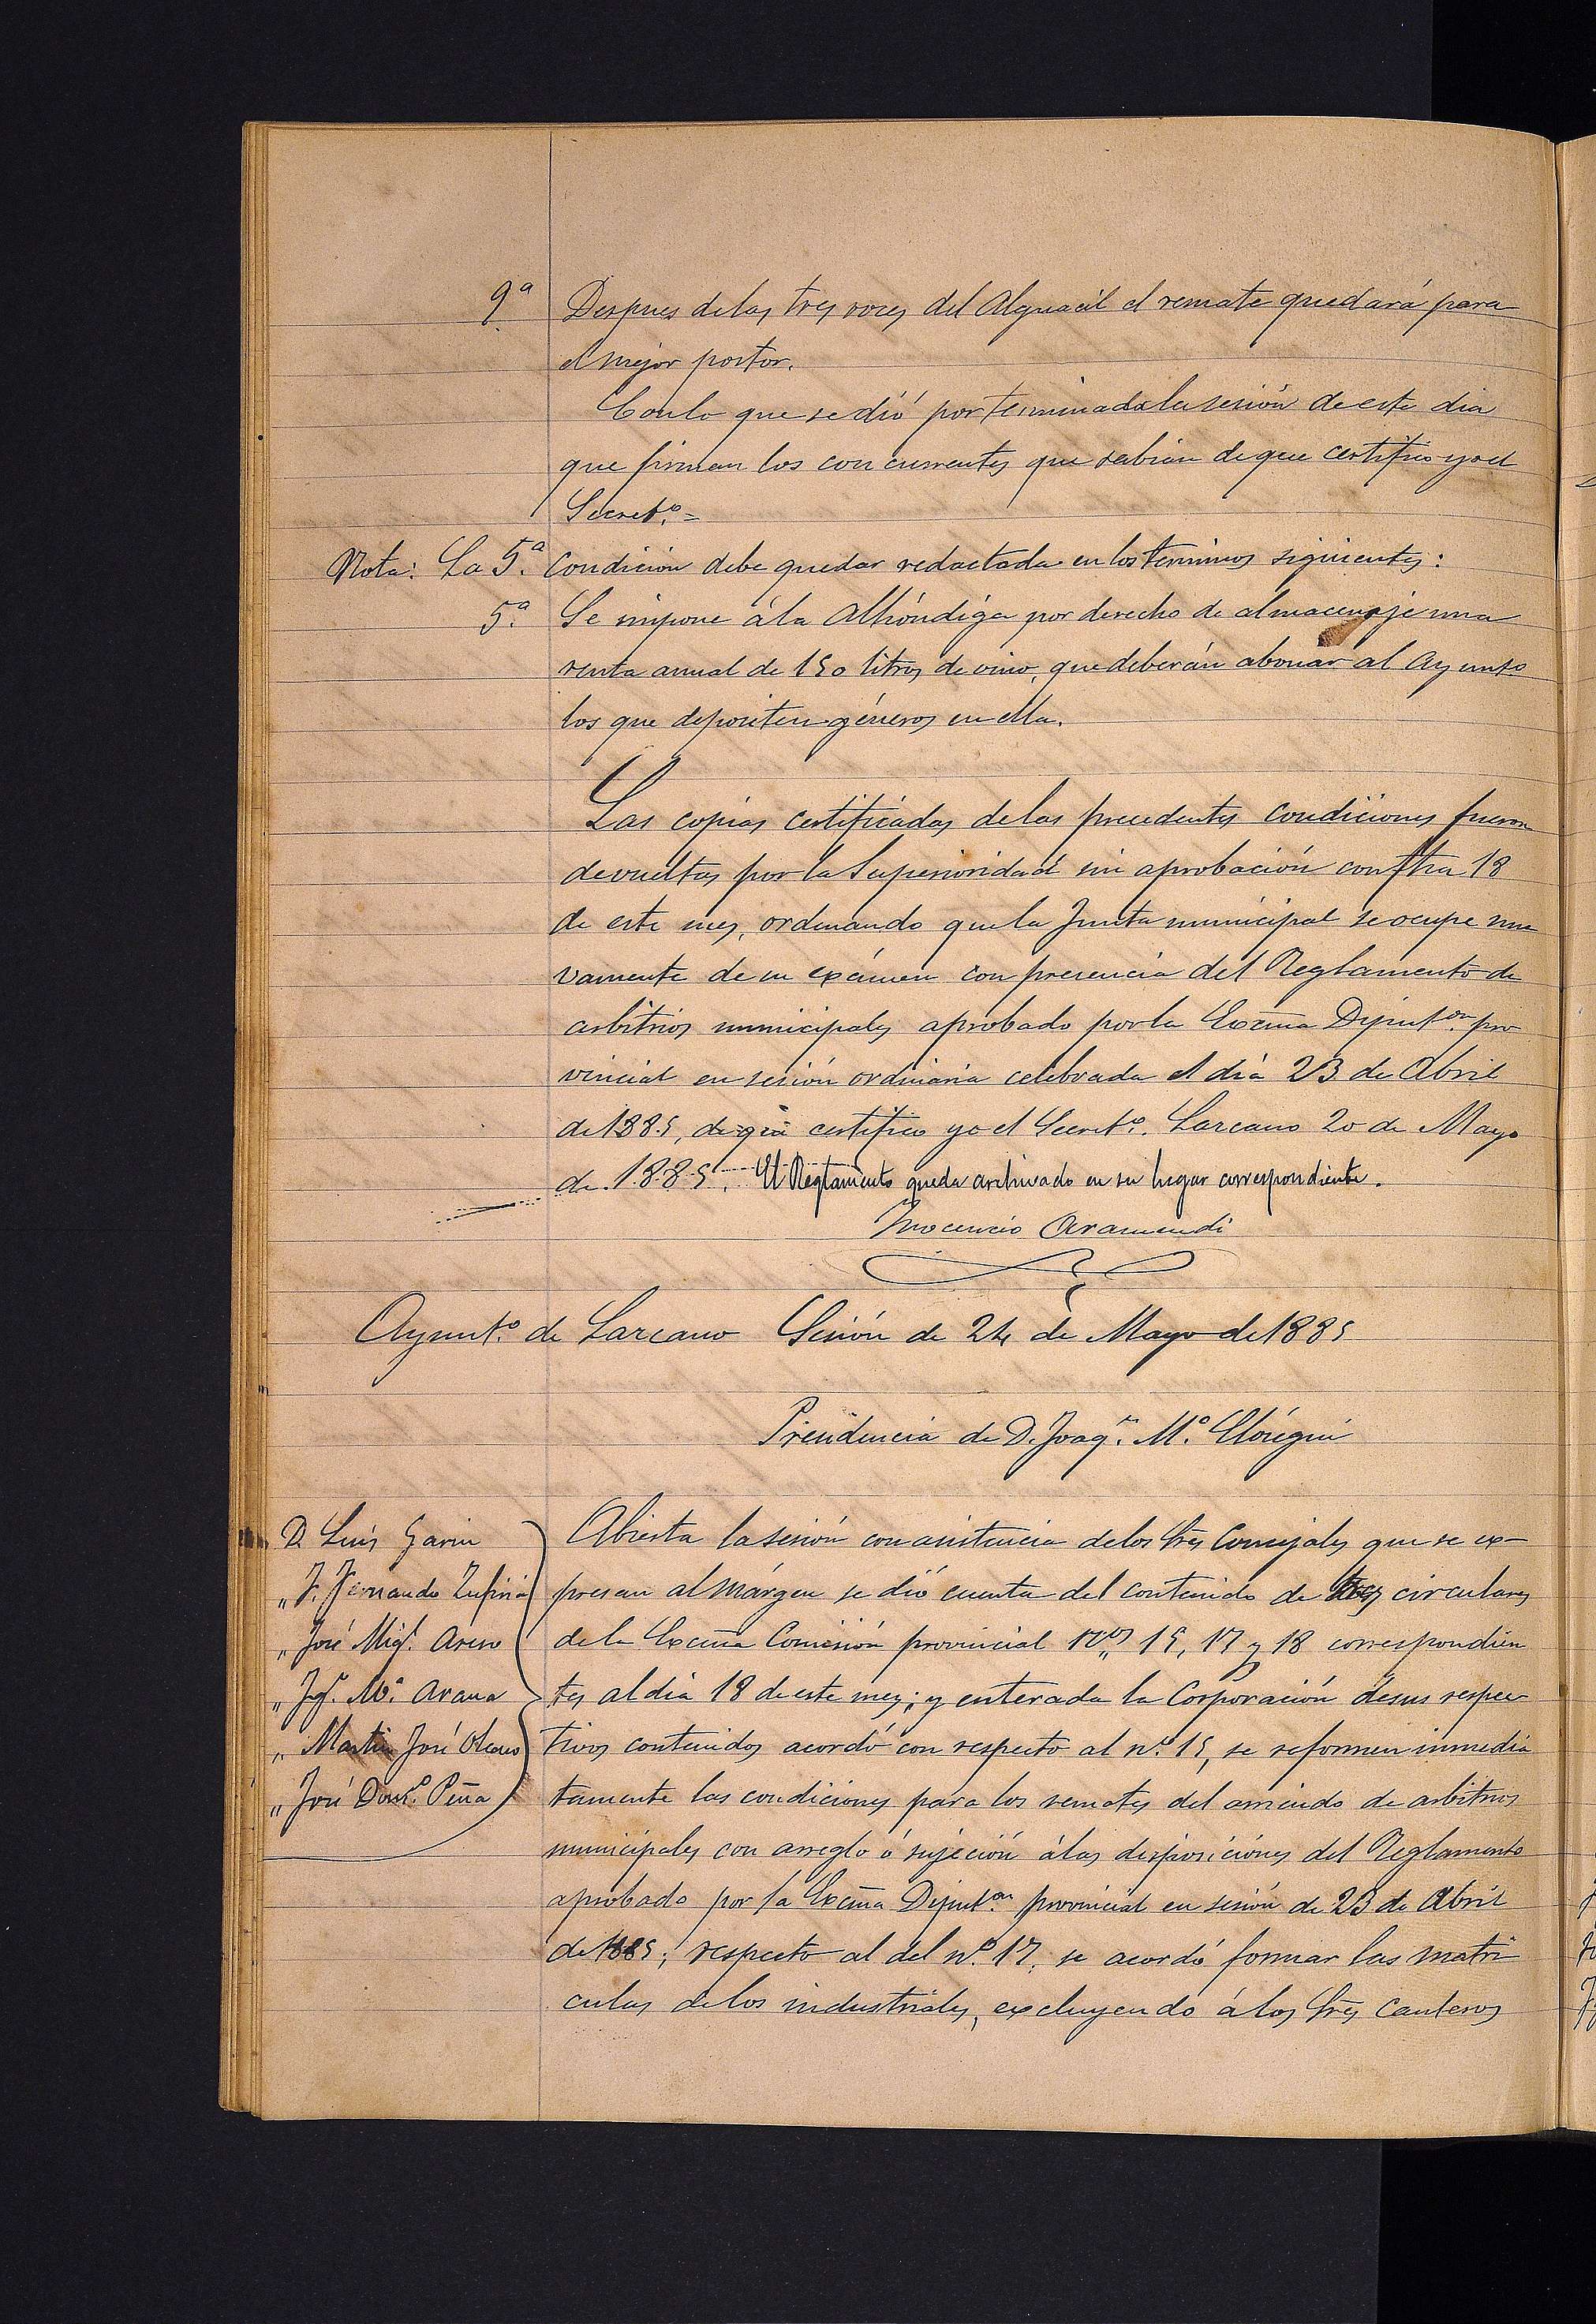 9ª Despues de las tres voces del Alguacil el remate quedará para
el mejor postor.
Con lo que se dió por terminada la sesión de este dia
que firman los concurrentes que sabian de que certifico yo el
Secretº =
Nota: La 5ª condición debe quedar redactada en los terminos siguientes:
5ª Se impone á la Alhóndiga por derecho de almacenaje una
renta anual de 150 litros de vino, que deberán abonar al Ayuntº
los que depositen géneros en ella.
Las copias certificadas de las precedentes condiciones fueron
devueltas por la Superioridad sin aprobación con fha 18
de este mes, ordenando que la Junta municipal se ocupe nue
vamente de su exámen con presencia del Reglamento de
arbitrios municipales aprobado por la Excma Diputon pro
vincial en sesión ordinaria celebrada el dia 23 de Abril
de 1885, de que certifico yo el Secretº. Lazcano 20 de Mayo
de 1885. El Reglamento queda archivado en su lugar correspondiente.
Inocencio Aramendi
Ayuntº de Lazcano Sesión de 24 de Mayo de 1885
Presidencia de D. Joaqn Mª Elósegui
D. Luis Garin
„ J. Fernando Zufiria
„ José Migl
„ Mª Arana
„ Martin José Olano
„ José Domº Peña
Abierta la sesión con asistencia de los Sres Concejales que se ex-
presan al márgen se dió cuenta del contenido de tres circulares
de la Excma Comisión provincial Nos 15, 17 y 18 correspondien
tes al dia 18 de este mes; y enterada la Corporación de sus respec
tivos contenidos acordó con respecto al nº 15, se reformen inmedia
tamente las condiciones para los remates del arriendo de arbitrios
municipales con arreglo ó sujeción á las disposiciones del Reglamento
aprobado por la Excma Diputon provincial en sesión de 23 de Abril
de 1885; respecto al del nº 17, se acordó formar las matri
culas de los industriales, excluyendo á los Sres Canteros